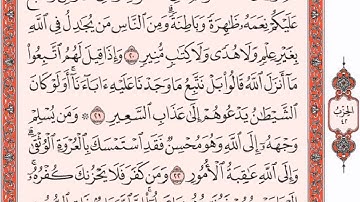 عَلَيْكُمْ نِعَمَهُۥ ظَٰهِرَةً وَبَاطِنَةً ۗ وَمِنَ ٱلنَّاسِ مَن يُجَٰدِلُ فِى ٱللَّهِ
بِغَيْرِ عِلْمٍ وَلَا هُدًى وَلَا كِتَٰبٍ مُّنِيرٍ ٢٠ وَإِذَا قِيلَ لَهُمُ ٱتَّبِعُوا۟
مَآ أَنزَلَ ٱللَّهُ قَالُوا۟ بَلْ نَتَّبِعُ مَا وَجَدْنَا عَلَيْهِ ءَابَآءَنَآ ۚ أَوَلَوْ كَانَ
ٱلشَّيْطَٰنُ يَدْعُوهُمْ إِلَىٰ عَذَابِ ٱلسَّعِيرِ ٢١ ۞ وَمَن يُسْلِمْ
وَجْهَهُۥٓ إِلَى ٱللَّهِ وَهُوَ مُحْسِنٌ فَقَدِ ٱسْتَمْسَكَ بِٱلْعُرْوَةِ ٱلْوُثْقَىٰ ۗ
وَإِلَى ٱللَّهِ عَٰقِبَةُ ٱلْأُمُورِ ٢٢ وَمَن كَفَرَ فَلَا يَحْزُنكَ كُفْرُهُۥٓ ۚ
الحزب
٤٢